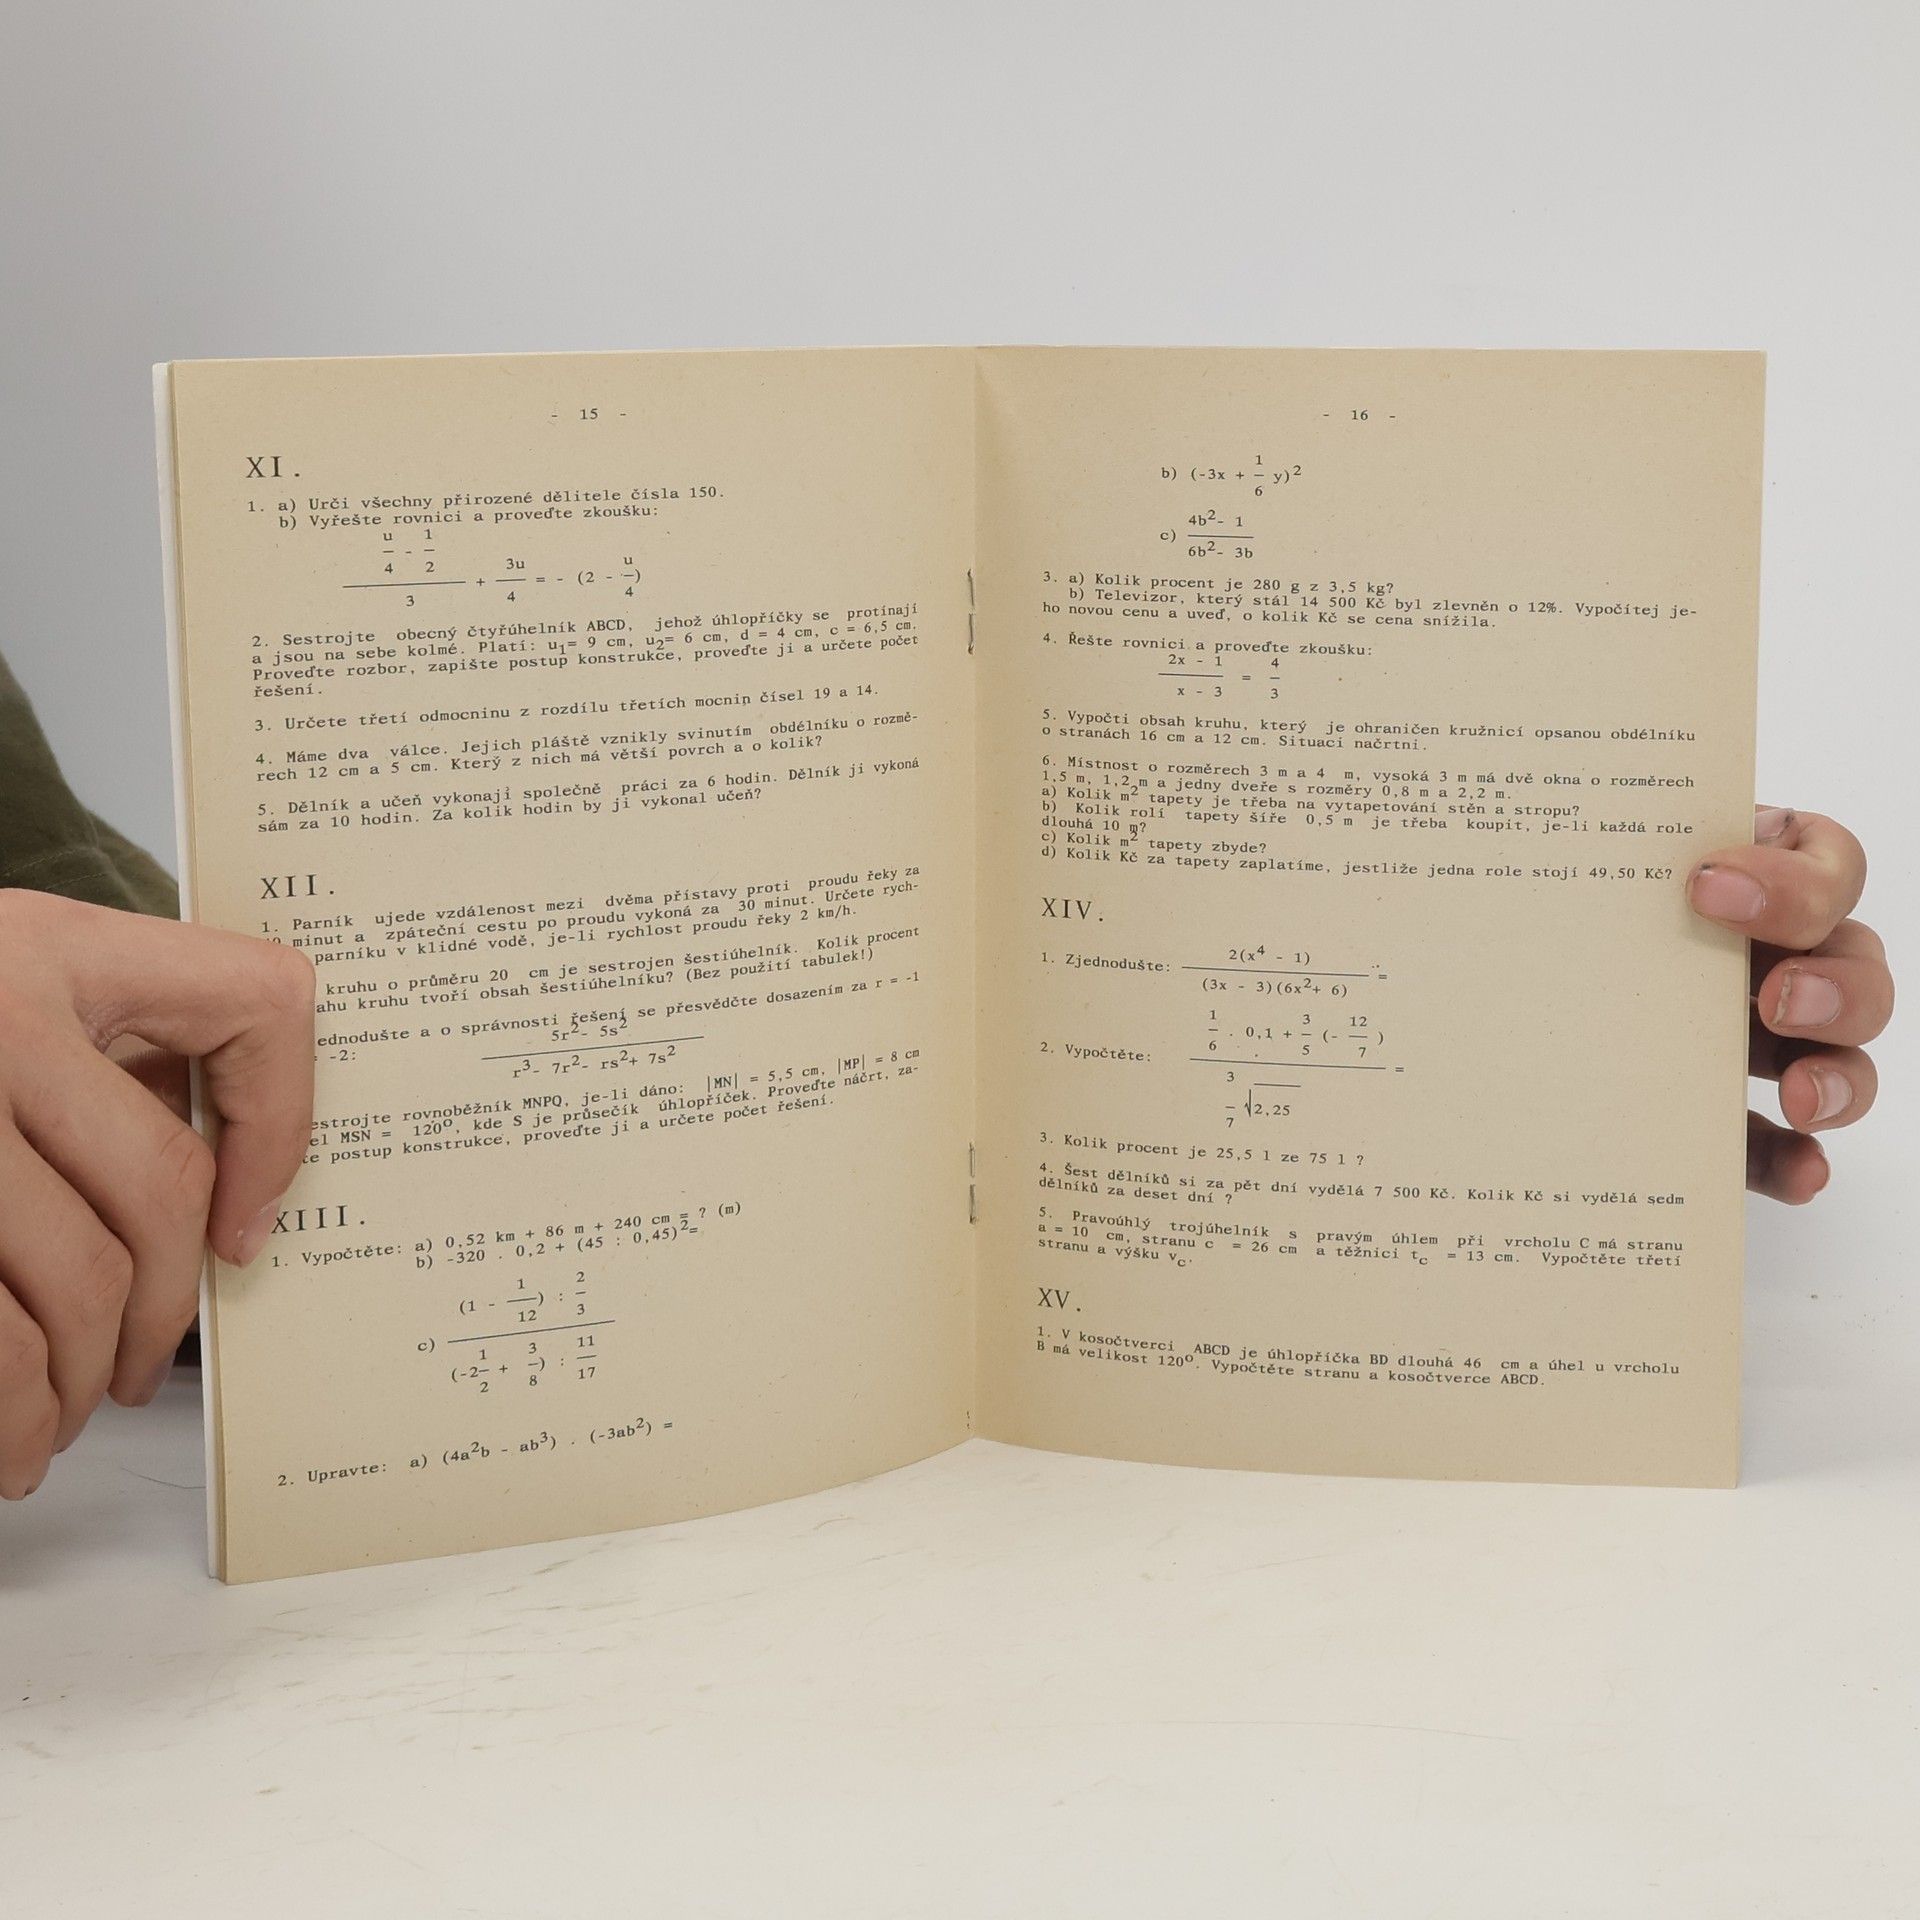 - 15 -
XI.
1. a) Urči všechny přirozené dělitele čísla 150.
b) Vyřešte rovnici a proveďte zkoušku:
u/4 - 1/2
3 + 3u/4 = - (2 - u/4)
2. Sestrojte obecný čtyřúhelník ABCD, jehož úhlopříčky se protínají
a jsou na sebe kolmé. Platí: u₁= 9 cm, u₂= 6 cm, d = 4 cm, c = 6,5 cm.
Proveďte rozbor, zapište postup konstrukce, proveďte ji a určete počet
řešení.
3. Určete třetí odmocninu z rozdílu třetích mocnin čísel 19 a 14.
4. Máme dva válce. Jejich pláště vznikly svinutím obdélníku o rozmě-
rech 12 cm a 5 cm. Který z nich má větší povrch a o kolik?
5. Dělník a učeň vykonají společně práci za 6 hodin. Dělník ji vykoná
sám za 10 hodin. Za kolik hodin by ji vykonal učeň?
XII.
1. Parník ujede vzdálenost mezi dvěma přístavy proti proudu řeky za
minut a zpáteční cestu po proudu vykoná za 30 minut. Určete rych-
parníku v klidné vodě, je-li rychlost proudu řeky 2 km/h.
kruhu o průměru 20 cm je sestrojen šestiúhelník. Kolik procent
ahu kruhu tvoří obsah šestiúhelníku? (Bez použití tabulek!)
ednodušte a o správnosti řešení se přesvědčte dosazením za r = -1
= -2:
5r²- 5s²
r³- 7r²- rs²+ 7s²
estrojte rovnoběžník MNPQ, je-li dáno: |MN| = 5,5 cm, |MP| = 8 cm
el MSN = 120°, kde S je průsečík úhlopříček. Proveďte náčrt, za-
te postup konstrukce, proveďte ji a určete počet řešení.
XIII.
1. Vypočtěte: a) 0,52 km + 86 m + 240 cm = ? (m)
b) -320 . 0,2 + (45 : 0,45)²=
(1 - 1/12) : 2/3
c)
(-2 1/2 + 3/8) : 11/17
2. Upravte: a) (4a²b - ab³) . (-3ab²) =
- 16 -
b) (-3x + 1/6 y)²
c) 4b²- 1
6b²- 3b
3. a) Kolik procent je 280 g z 3,5 kg?
b) Televizor, který stál 14 500 Kč byl zlevněn o 12%. Vypočítej je-
ho novou cenu a uveď, o kolik Kč se cena snížila.
4. Řešte rovnici a proveďte zkoušku:
2x - 1 = 4
x - 3 3
5. Vypočti obsah kruhu, který je ohraničen kružnicí opsanou obdélníku
o stranách 16 cm a 12 cm. Situaci načrtni.
6. Místnost o rozměrech 3 m a 4 m, vysoká 3 m má dvě okna o rozměrech
1,5 m, 1,2 m a jedny dveře s rozměry 0,8 m a 2,2 m.
a) Kolik m² tapety je třeba na vytapetování stěn a stropu?
b) Kolik rolí tapety šíře 0,5 m je třeba koupit, je-li každá role
dlouhá 10 m?
c) Kolik m² tapety zbyde?
d) Kolik Kč za tapety zaplatíme, jestliže jedna role stojí 49,50 Kč?
XIV.
1. Zjednodušte: 2(x⁴ - 1) =
(3x - 3)(6x²+ 6)
1/6 . 0,1 + 3/5 (- 12/7)
2. Vypočtěte: =
3/7 √2,25
3. Kolik procent je 25,5 l ze 75 l ?
4. Šest dělníků si za pět dní vydělá 7 500 Kč. Kolik Kč si vydělá sedm
dělníků za deset dní ?
5. Pravoúhlý trojúhelník s pravým úhlem při vrcholu C má stranu
a = 10 cm, stranu c = 26 cm a těžnici t_c = 13 cm. Vypočtěte třetí
stranu a výšku v_c.
XV.
1. V kosočtverci ABCD je úhlopříčka BD dlouhá 46 cm a úhel u vrcholu
B má velikost 120°. Vypočtěte stranu a kosočtverce ABCD.